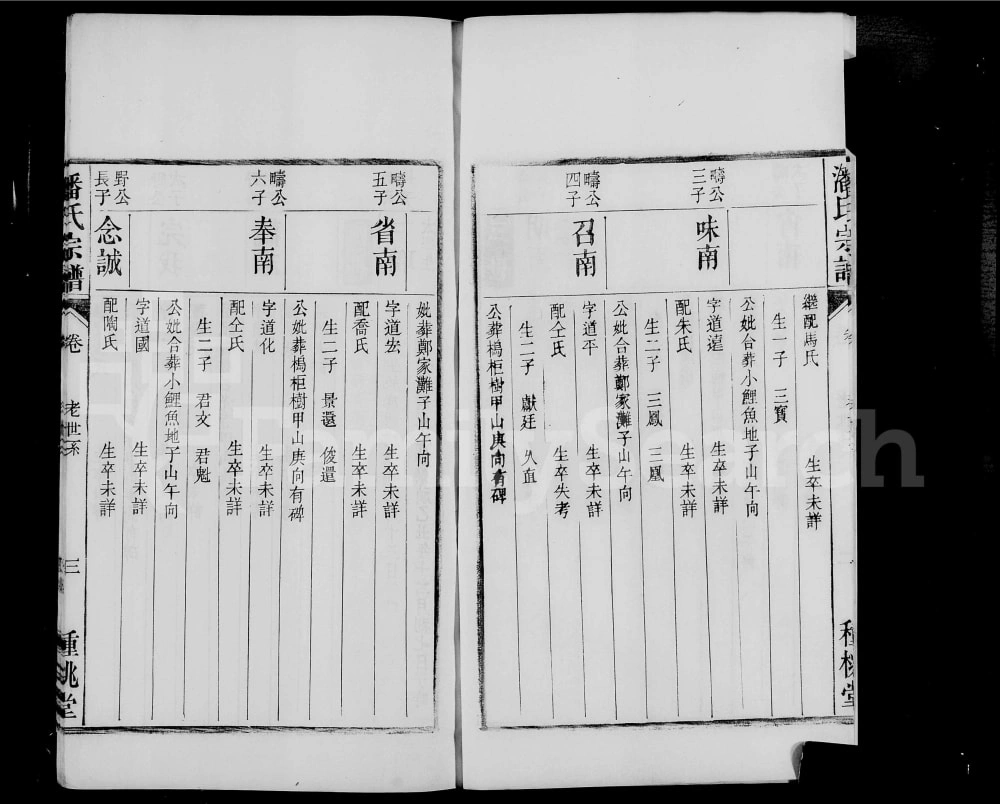 潘氏宗譜
種桃堂
繼配馬氏 生卒未詳
生一子 三寶
公妣合葬小鯉魚地子山午向
疇公三子
味南
字道遠 生卒未詳
配朱氏 生卒未詳
生二子 三鳳 三凰
公妣合葬鄭家灘子山午向
疇公四子
召南
字道平 生卒未詳
配仝氏 生卒失考
生二子 獻廷 久直
公葬楊柜樹甲山庚向有碑
妣葬鄭家灘子山午向
疇公五子
省南
字道宏 生卒未詳
配喬氏 生卒未詳
生二子 景還 俊還
公妣葬楊柜樹甲山庚向有碑
疇公六子
奉南
字道化 生卒未詳
配仝氏 生卒未詳
生二子 君文 君魁
公妣合葬小鯉魚地子山午向
野公長子
念誠
字道國 生卒未詳
配陶氏 生卒未詳
潘氏宗譜
卷
老世系
三
種桃堂
FamilySearch